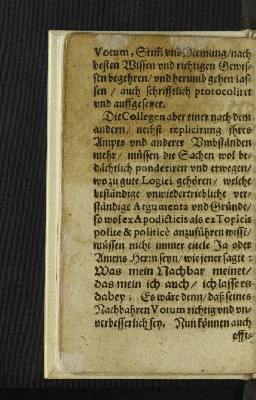 Votum, Stim̄ vnd Meinung/nach
besten Wissen vnd richtigen Gewis-
sen begehren/ vnd herumb gehen las-
sen / auch schrifftlich protocoliret
vnd auffgesetzet.
Die Collegen aber einer nach dem
andern/ nechst explicirung ihres
Ampts vnd anderer Vmbständen
mehr/ müssen die Sachen wol be-
dächtlich ponderiren vnd erwegen/
wozu gute Logici gehören/ welche
beständige vnwiedertriebliche ver-
ständige Argumenta vnd Gründe/
so wol ex Apodicticis als ex Topicis
polite & politicè anzuführen wissē/
müssen nicht immer eitele Ja oder
Amens Herrn seyn/ wie jener sagte:
Was mein Nachbar meinet/
das mein ich auch/ ich lasse es
dabey: Es wäre denn/ daß seines
Nachbahren Votum richtig vnd vn-
verbesserlich sey. Nun können auch
offt-